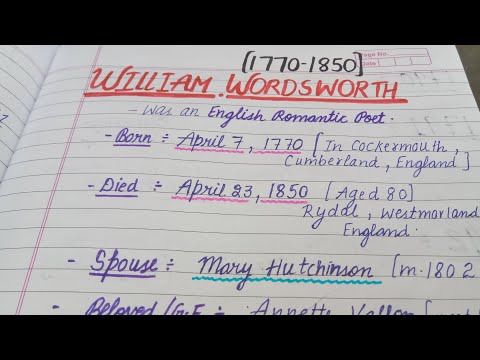 [1770-1850]
Page No.
Date
WILLIAM WORDSWORTH
- Was an English Romantic Poet.
- Born ÷ April 7, 1770 [In Cockermouth,
Cumberland, England]
- Died ÷ April 23, 1850 [Aged 80]
Rydal, Westmorland
England.
- Spouse ÷ Mary Hutchinson [m. 1802
- Beloved / G.F ÷ Annette